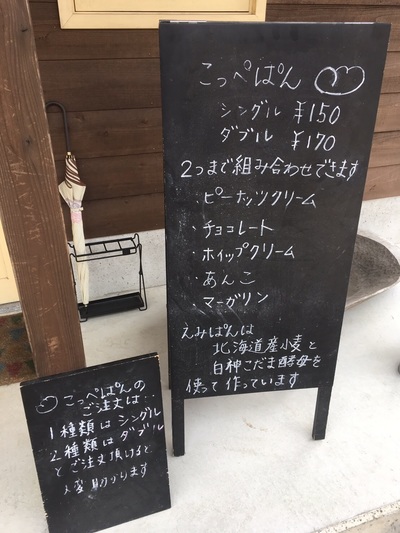 こっぺぱん
シングル ¥150
ダブル ¥170
2つまで組み合わせできます
・ピーナッツクリーム
・チョコレート
・ホイップクリーム
・あんこ
・マーガリン
えみぱんは
北海道産小麦と
白神こだま酵母を
使って作っています
こっぺぱんの
ご注文は…
1種類はシングル
2種類はダブル
とご注文頂けると
大変助かります